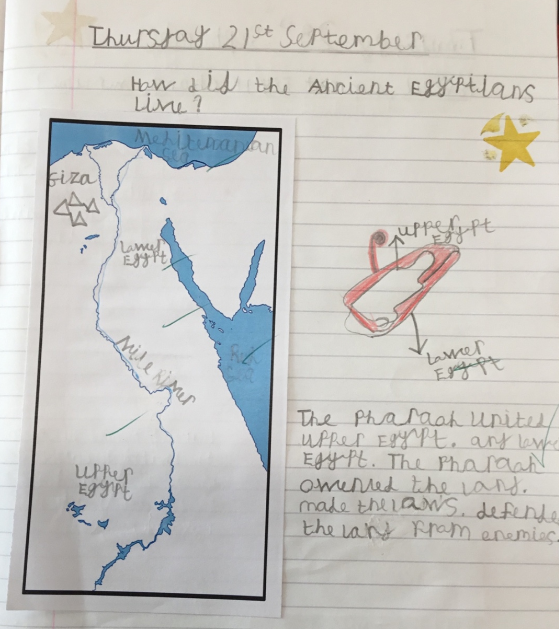 Thursday 21st September
How did the Ancient Egyptians
Live?
Mediterranean
Sea
Giza
Lower
Egypt
Nile River
Red
Sea
Upper
Egypt
upper
Egypt
Lower
Egypt
The Pharaoh united
upper Egypt. and lowe
Egypt. The Pharaoh
owened the land.
made the laws. defende
the land from enemies.